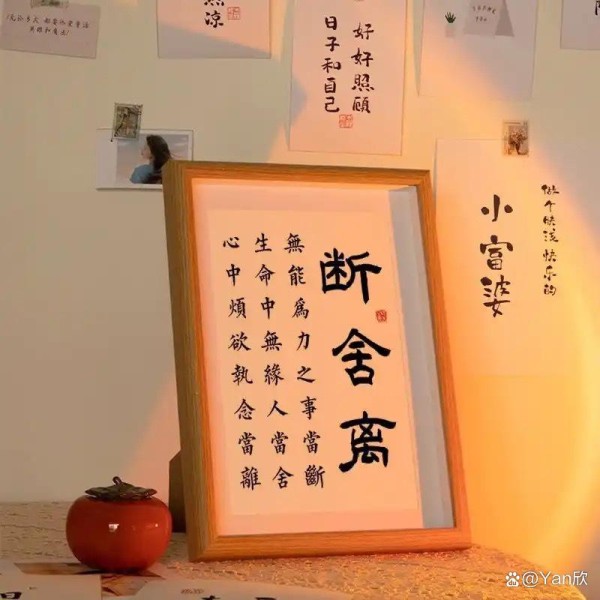 断舍离
無能爲力之事當斷
生命中無緣人當舍
心中煩欲執念當離
好好照顧
日子和自己
小富婆
@Yan欣